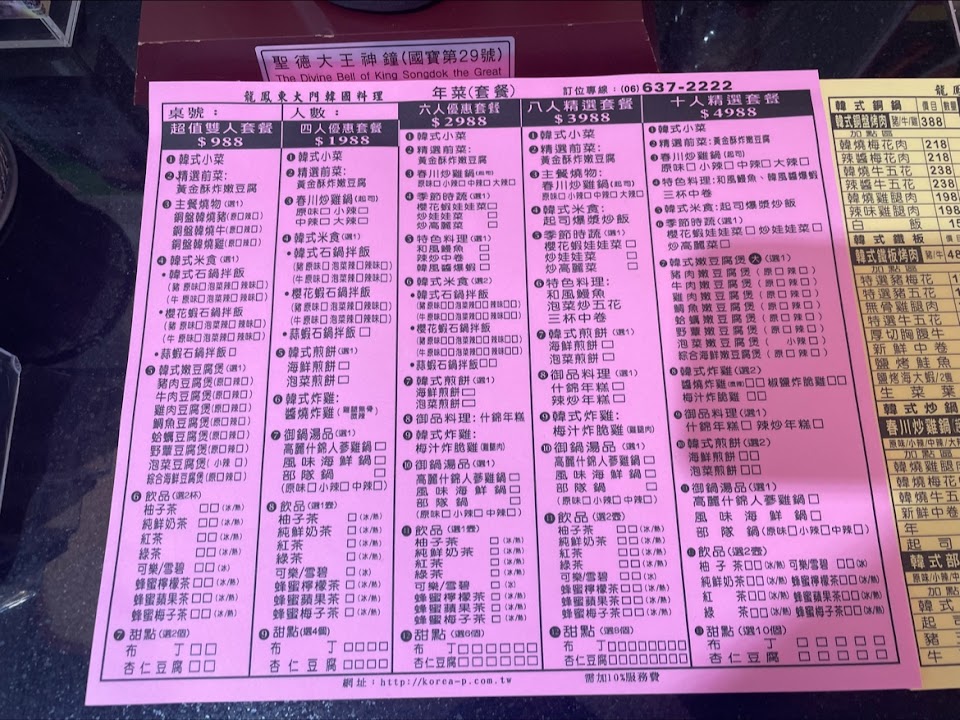 聖德大王神鐘(國寶第29號)
The Divine Bell of King Songdok the Great
龍鳳東大門韓國料理
年菜(套餐)
訂位專線：(06)637-2222
桌號：
人數：
超值雙人套餐
$988
❶韓式小菜
❷精選前菜：
黃金酥炸嫩豆腐
❸主餐燒物(選1)
銅盤韓燒豬(原□辣□)
銅盤韓燒牛(原□辣□)
銅盤韓燒雞□
❹韓式米食(選1)
•韓式石鍋拌飯
(豬 原味□泡菜辣□辣味□)
(牛 原味□泡菜辣□辣味□)
•櫻花蝦石鍋拌飯
(豬 原味□泡菜辣□辣味□)
(牛 原味□泡菜辣□辣味□)
•蒜蝦石鍋拌飯□
❺韓式嫩豆腐煲(選1)
豬肉豆腐煲(原□辣□)
牛肉豆腐煲(原□辣□)
雞肉豆腐煲(原□辣□)
鯛魚豆腐煲(原□辣□)
蛤蠣豆腐煲(原□辣□)
野蕈豆腐煲(原□辣□)
泡菜豆腐煲(小辣□)
綜合海鮮豆腐煲(原□辣□)
❻飲品(選2杯)
柚子茶 □□(冰/熱)
純鮮奶茶 □□(冰/熱)
紅茶 □□(冰/熱)
綠茶 □□(冰/熱)
可樂/雪碧 □□(冰)
蜂蜜檸檬茶□□(冰/熱)
蜂蜜蘋果茶□□(冰/熱)
蜂蜜梅子茶□□(冰/熱)
❼甜點(選2個)
布丁□□
杏仁豆腐□□
四人優惠套餐
$1988
❶韓式小菜
❷精選前菜：
黃金酥炸嫩豆腐
❸春川炒雞鍋(起司)
原味□ 小辣□
中辣□ 大辣□
❹韓式米食(選1)
•韓式石鍋拌飯
(豬 原味□泡菜辣□辣味□)
(牛 原味□泡菜辣□辣味□)
•櫻花蝦石鍋拌飯
(豬 原味□泡菜辣□辣味□)
(牛 原味□泡菜辣□辣味□)
•蒜蝦石鍋拌飯□
❺韓式煎餅(選1)
海鮮煎餅□
泡菜煎餅□
❻韓式炸雞：
醬燒炸雞
❼御鍋湯品(選1)
高麗什錦人蔘雞鍋□
風味海鮮鍋□
部隊鍋□
(原味□小辣□ 中辣□)
❽飲品(選1壺)
柚子茶 □(冰/熱)
純鮮奶茶 □(冰/熱)
紅茶 □(冰/熱)
綠茶 □(冰/熱)
可樂/雪碧 □(冰)
蜂蜜檸檬茶□(冰/熱)
蜂蜜蘋果茶□(冰/熱)
蜂蜜梅子茶□(冰/熱)
❾甜點(選4個)
布丁□□□□
杏仁豆腐□□□□
六人優惠套餐
$2988
❶韓式小菜
❷精選前菜：
黃金酥炸嫩豆腐
❸春川炒雞鍋(起司)
原味□小辣□中辣□大辣□
❹季節時蔬(選1)
櫻花蝦娃娃菜□
炒娃娃菜□
炒高麗菜□
❺特色料理(選1)
和風鰻魚□
辣炒中卷□
韓風醬爆蝦□
❻韓式米食(選2)
•韓式石鍋拌飯
(豬原味□□泡菜辣□□辣味□□)
(牛原味□□泡菜辣□□辣味□□)
•櫻花蝦石鍋拌飯
(豬原味□□泡菜辣□□辣味□□)
(牛原味□□泡菜辣□□辣味□□)
•蒜蝦石鍋拌飯□□
❼韓式煎餅(選1)
海鮮煎餅□
泡菜煎餅□
❽御品料理：什錦年糕
❾韓式炸雞：
梅汁炸脆雞(雞腿肉)
❿御鍋湯品(選1)
高麗什錦人蔘雞鍋□
風味海鮮鍋□
部隊鍋□
(原味□小辣□中辣□)
⓫飲品(選1壺)
柚子茶 □(冰/熱)
純鮮奶茶 □(冰/熱)
紅茶 □(冰/熱)
綠茶 □(冰/熱)
可樂/雪碧 □(冰)
蜂蜜檸檬茶□(冰/熱)
蜂蜜蘋果茶□(冰/熱)
蜂蜜梅子茶□(冰/熱)
⓬甜點(選6個)
布丁□□□□□□
杏仁豆腐□□□□□□
八人精選套餐
$3988
❶韓式小菜
❷精選前菜：
黃金酥炸嫩豆腐
❸主餐燒物：
春川炒雞鍋(起司)
原味□小辣□中辣□大辣□
❹韓式米食：
起司爆漿炒飯
❺季節時蔬(選1)
櫻花蝦娃娃菜□
炒娃娃菜□
炒高麗菜□
❻特色料理：
和風鰻魚
泡菜炒五花
三杯中卷
❼韓式煎餅(選1)
海鮮煎餅□
泡菜煎餅□
❽御品料理(選1)
什錦年糕□
辣炒年糕□
❾韓式炸雞：
梅汁炸脆雞(雞腿肉)
❿御鍋湯品(選1)
高麗什錦人蔘雞鍋□
風味海鮮鍋□
部隊鍋□
(原味□小辣□中辣□)
⓫飲品(選2壺)
柚子茶 □□(冰/熱)
純鮮奶茶 □□(冰/熱)
紅茶 □□(冰/熱)
綠茶 □□(冰/熱)
可樂/雪碧 □□(冰)
蜂蜜檸檬茶□□(冰/熱)
蜂蜜蘋果茶□□(冰/熱)
蜂蜜梅子茶□□(冰/熱)
⓬甜點(選8個)
布丁□□□□□□□□
杏仁豆腐□□□□□□□□
十人精選套餐
$4988
❶韓式小菜
❷精選前菜：黃金酥炸嫩豆腐
❸春川炒雞鍋(起司)
原味□小辣□中辣□大辣□
❹特色料理：和風鰻魚、韓風醬爆蝦
三杯中卷
❺韓式米食：起司爆漿炒飯
❻季節時蔬(選1)
櫻花蝦娃娃菜□炒娃娃菜□
炒高麗菜□
❼韓式嫩豆腐煲(大)(選1)
豬肉嫩豆腐煲(原□辣□)
牛肉嫩豆腐煲(原□辣□)
雞肉嫩豆腐煲(原□辣□)
鯛魚嫩豆腐煲(原□辣□)
蛤蠣嫩豆腐煲(原□辣□)
野蕈嫩豆腐煲(原□辣□)
泡菜嫩豆腐煲(小辣□)
綜合海鮮嫩豆腐煲(原□辣□)
❽韓式炸雞(選2)
醬燒炸雞□□椒鹽炸脆雞□□
梅汁炸脆雞□□
❾御品料理(選1)
什錦年糕□辣炒年糕□
❿韓式煎餅(選2)
海鮮煎餅□□
泡菜煎餅□□
⓫御鍋湯品(選1)
高麗什錦人蔘雞鍋□
風味海鮮鍋□
部隊鍋(原味□小辣□中辣□)
⓬飲品(選2壺)
柚子茶□□(冰/熱)可樂/雪碧□□(冰)
純鮮奶茶□□(冰/熱)蜂蜜檸檬茶□□(冰/熱)
紅茶□□(冰/熱)蜂蜜蘋果茶□□(冰/熱)
綠茶□□(冰/熱)蜂蜜梅子茶□□(冰/熱)
⓭甜點(選10個)
布丁□□□□□
杏仁豆腐□□□□□
網址：http://korea-p.com.tw
需加10%服務費
龍鳳
韓式銅鍋 價目 數量
韓式銅盤烤肉 豬/牛/雞 388
加點區
韓燒梅花肉 218
辣醬梅花肉 218
韓燒牛五花 238
辣醬牛五花 238
韓燒雞腿肉 198
辣味雞腿肉 198
白飯 15
韓式鐵板 價目
韓式鐵板烤肉 豬/牛
加點區
特選豬梅花
特選豬五花
無骨雞腿肉
特選牛五花
厚切胸腹牛
新鮮中卷
鹽烤鮭魚
鹽烤海大蝦/2隻
生菜葉
韓式炒鍋
春川炒雞鍋
原味/小辣/中辣/大辣
韓燒雞腿肉
韓燒梅花
韓燒牛五
新鮮中卷
年
起司
韓式部
原味/小辣/中
加點
韓式
起
豬
牛